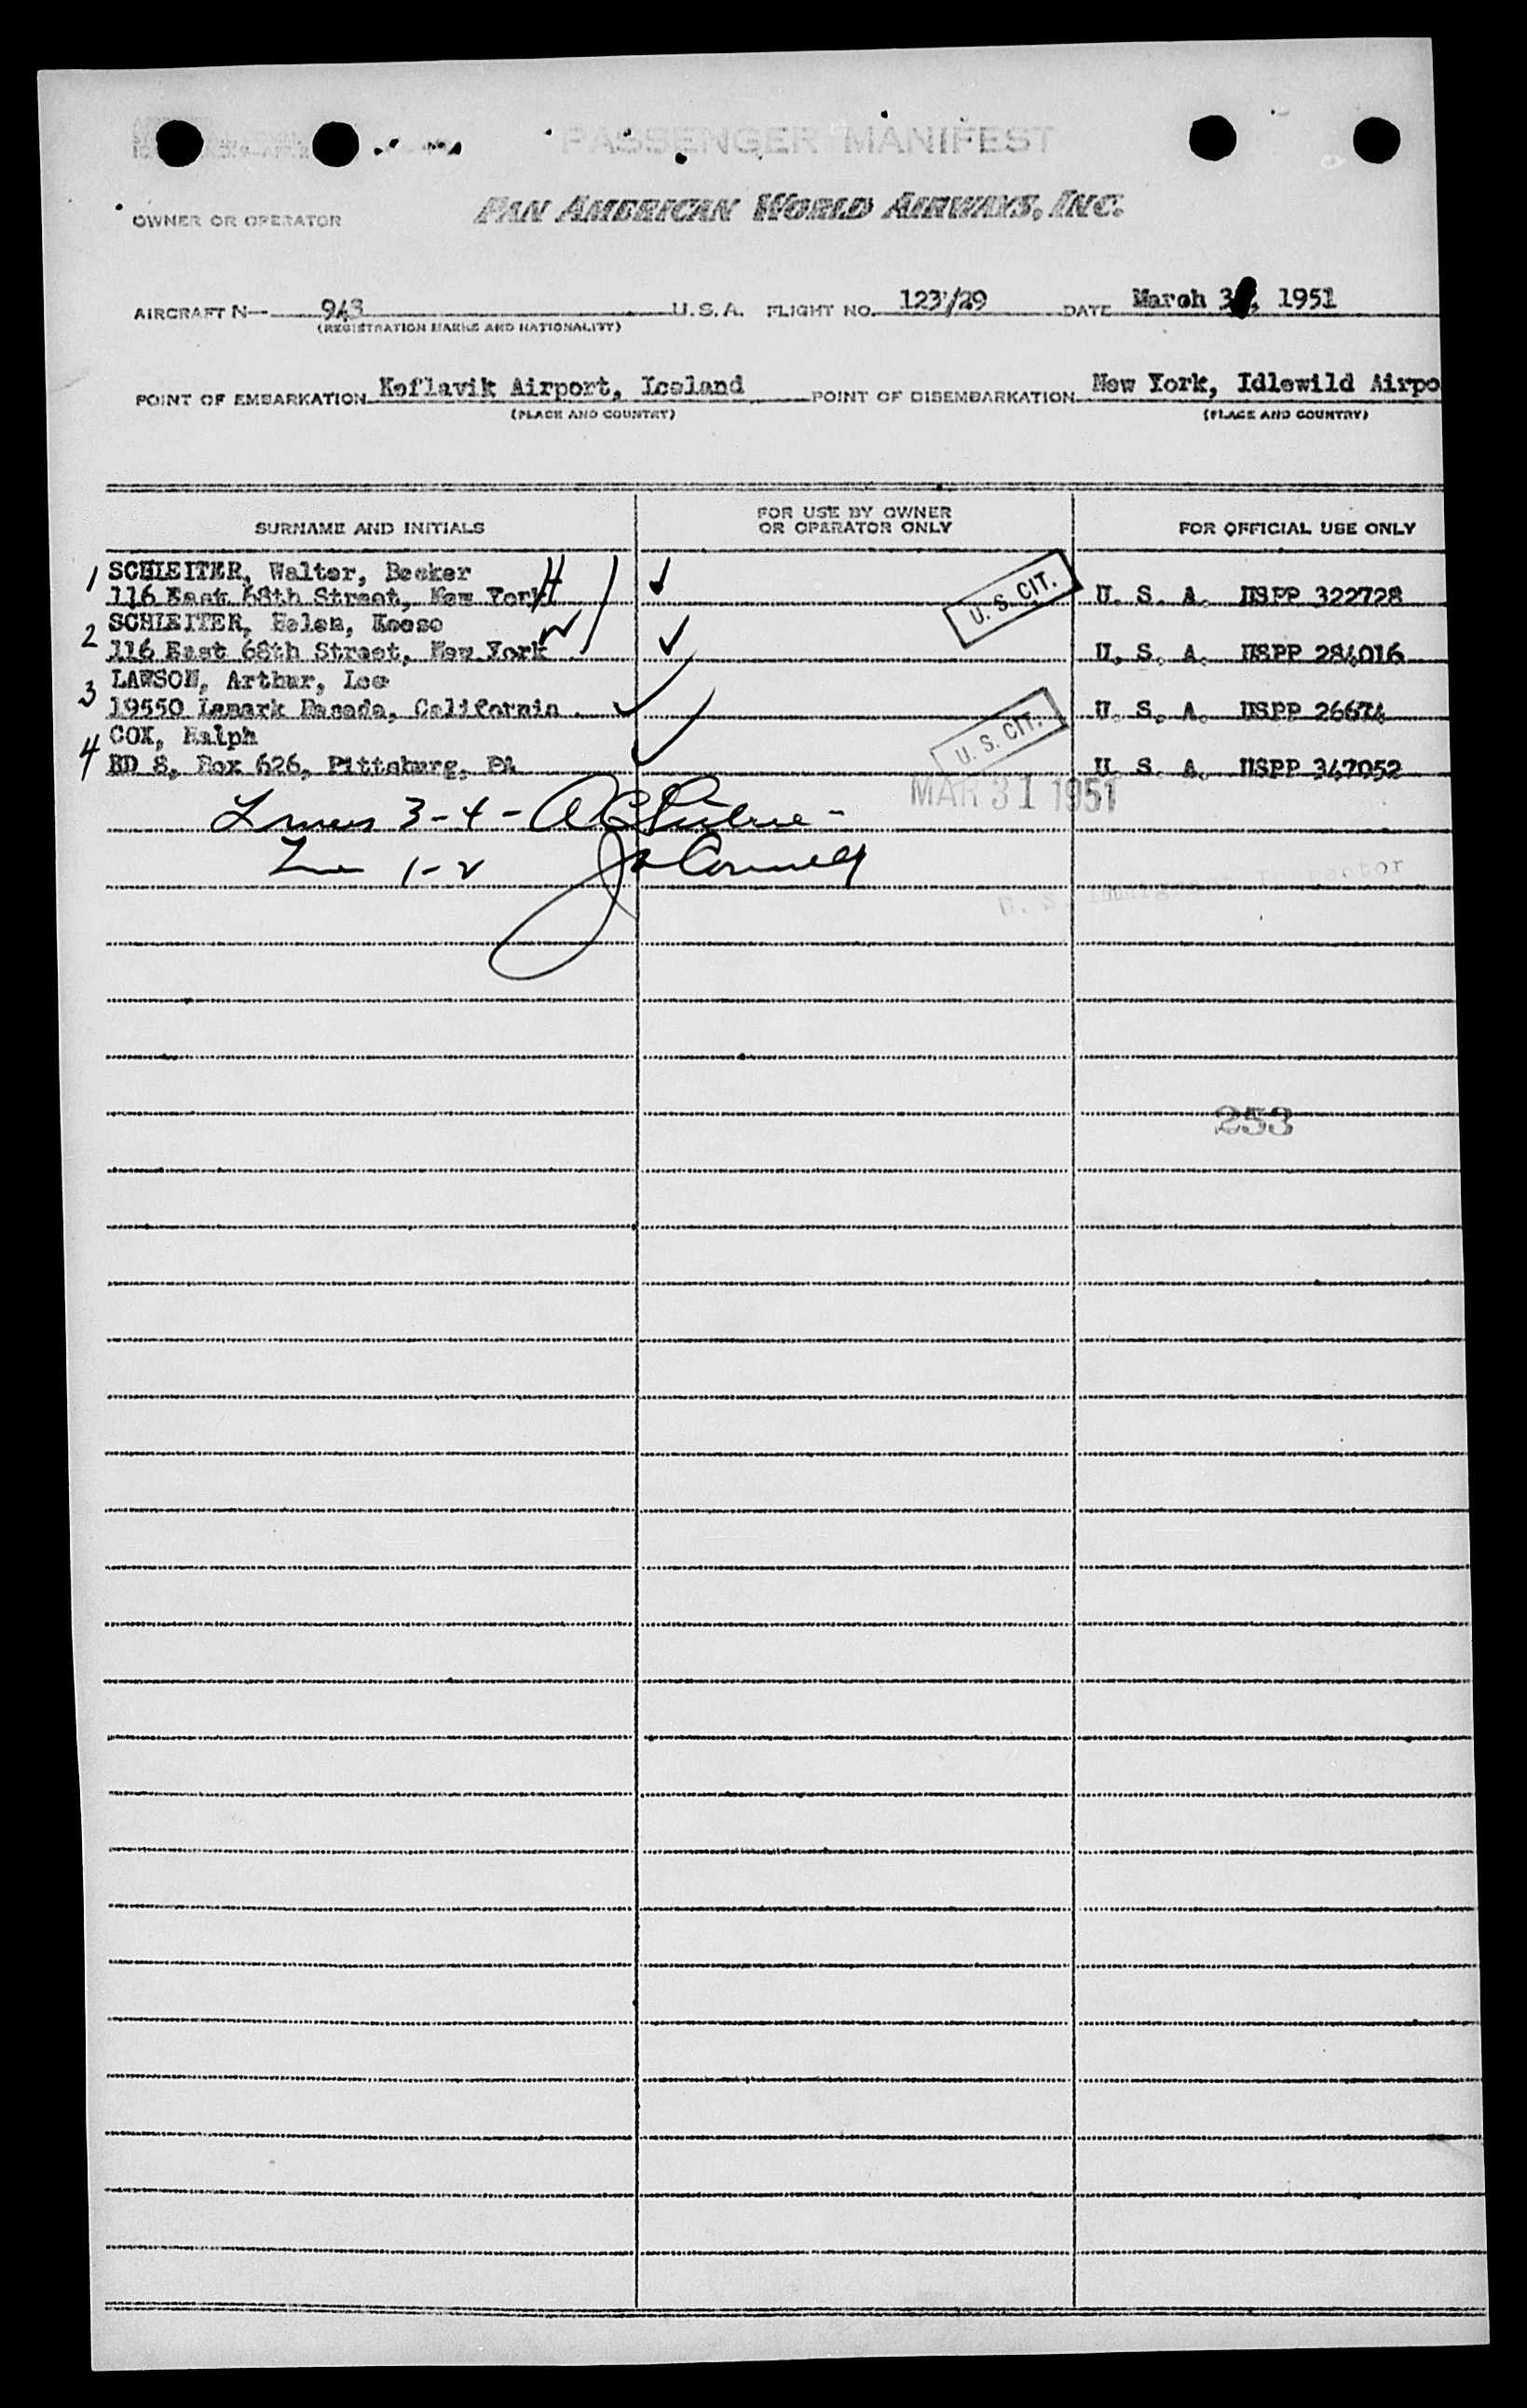 PASSENGER MANIFEST
OWNER OR OPERATOR PAN AMERICAN WORLD AIRWAYS, INC.
AIRCRAFT N— 943 U.S.A. FLIGHT NO. 123/29 DATE March 3 , 1951
(REGISTRATION MARKS AND NATIONALITY)
POINT OF EMBARKATION Keflavik Airport, Iceland POINT OF DISEMBARKATION New York, Idlewild Airpo
(PLACE AND COUNTRY) (PLACE AND COUNTRY)
SURNAME AND INITIALS FOR USE BY OWNER OR OPERATOR ONLY FOR OFFICIAL USE ONLY
1 SCHLEITER, Walter, Becker
116 East 68th Street, New York U. S. CIT. U. S. A. USPP 322728
2 SCHLEITER, Helen,
116 East 68th Street, New York U. S. A. USPP 284016
3 LAWSON, Arthur, Lee
19550 California U. S. CIT. U. S. A. USPP 26674
4 COX, Ralph
RD 8, Box 626, Pittsburg, PA U. S. A. USPP 347052
MAR 31 1951
3-4 -
1-2
U. S. Immigrant Inspector
253